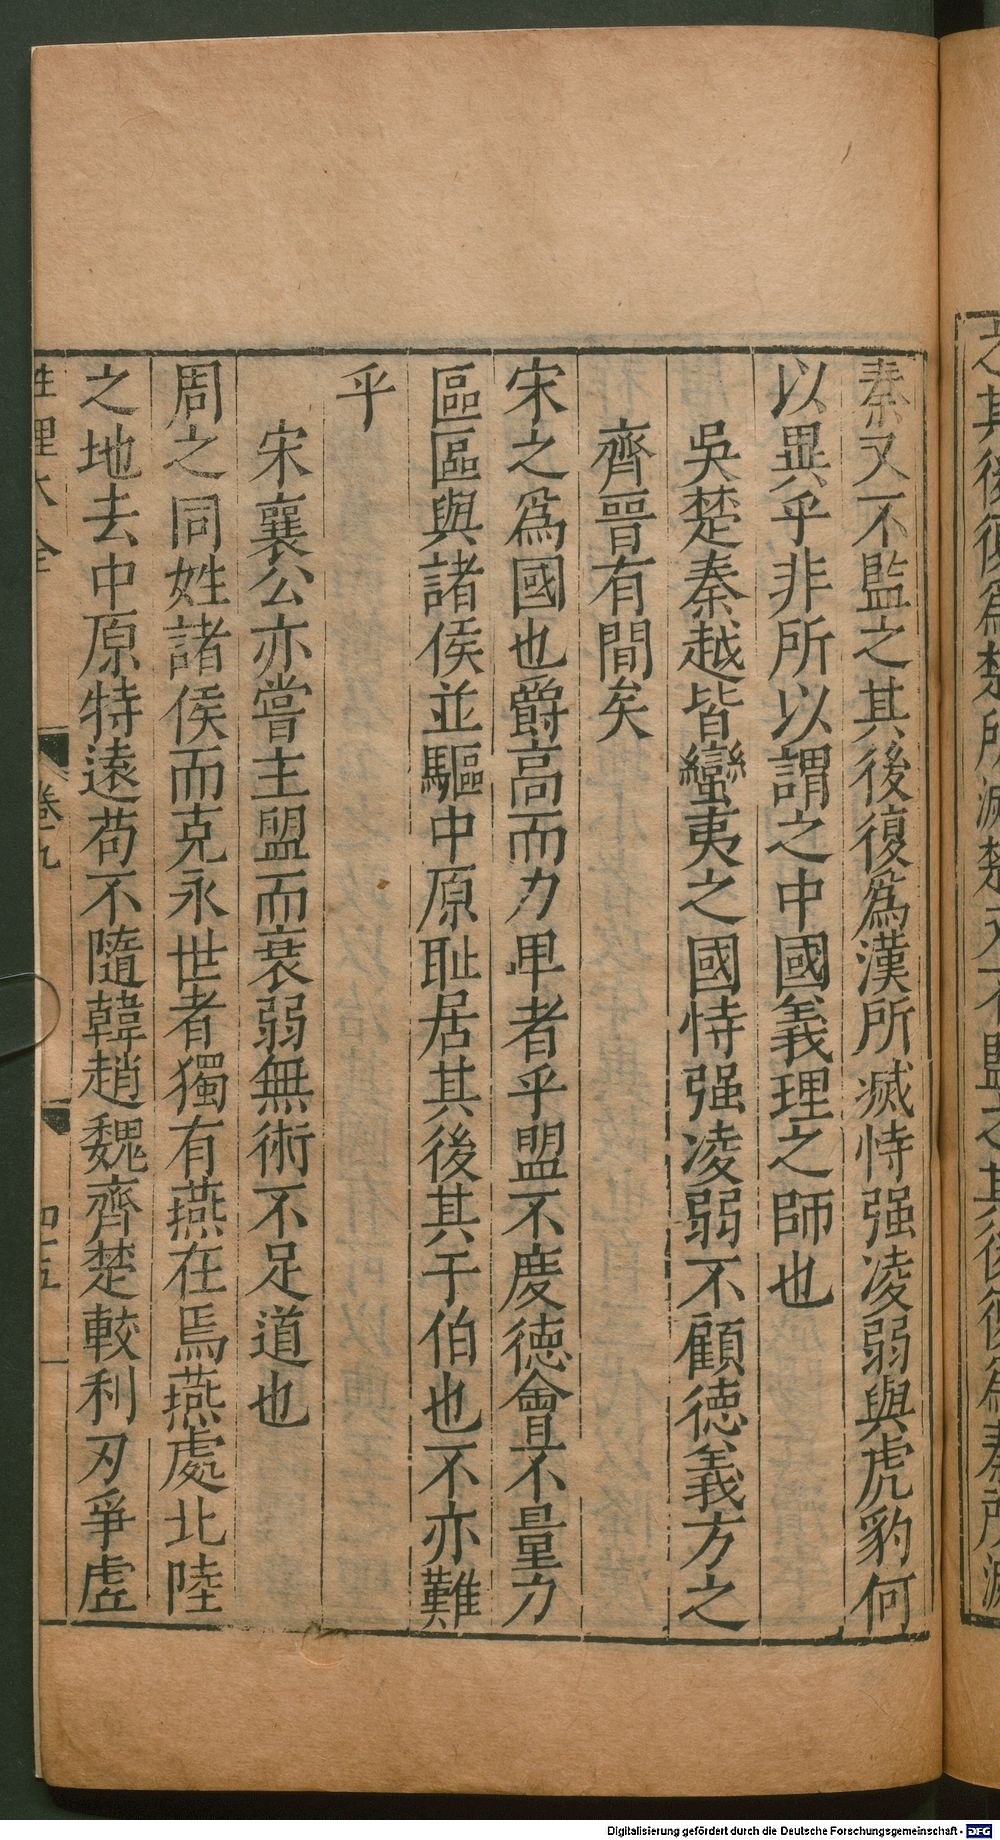 之其後復爲楚所滅楚又不監之其後復爲秦所滅
秦又不監之其後復爲漢所滅恃强凌弱與虎豹何
以異乎非所以謂之中國義理之師也
吳楚秦越皆蠻夷之國恃强凌弱不顧德義方之
齊晉有間矣
宋之爲國也爵高而力卑者乎盟不度德會不量力
區區與諸侯並驅中原耻居其後其于伯也不亦難
乎
宋襄公亦嘗主盟而衰弱無術不足道也
周之同姓諸侯而克永世者獨有燕在焉燕處北陸
之地去中原特遠苟不隨韓趙魏齊楚較利刃爭虛
性理大全 卷九 四十五
Digitalisierung gefördert durch die Deutsche Forschungsgemeinschaft - DFG